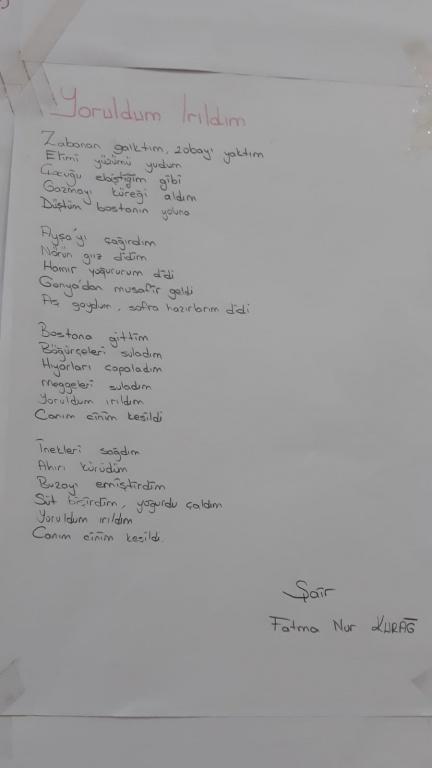 Yoruldum Irıldım
Zabanan galktım, zobayı yaktım
Elimi yüzümü yudum
Çocuğu ebiştiğim gibi
Gazmayı küreği aldım
Düştüm bostanın yoluna
Ayşa'yı çağırdım
Nörün gız didim
Hamır yoğururum didi
Gonya'dan musafir geldi
Aş goydum, sofra hazırlarım didi
Bostana gittim
Böğürçeleri suladım
Hıyarları çapaladım
Meggeleri suladım
Yoruldum ırıldım
Canım cinim kesildi
İnekleri sağdım
Ahırı kürüdüm
Buzayı emiştirdim
Süt bişirdim, yoğurdu çaldım
Yoruldum ırıldım
Canım cinim kesildi.
Şair
Fatma Nur KURAĞ